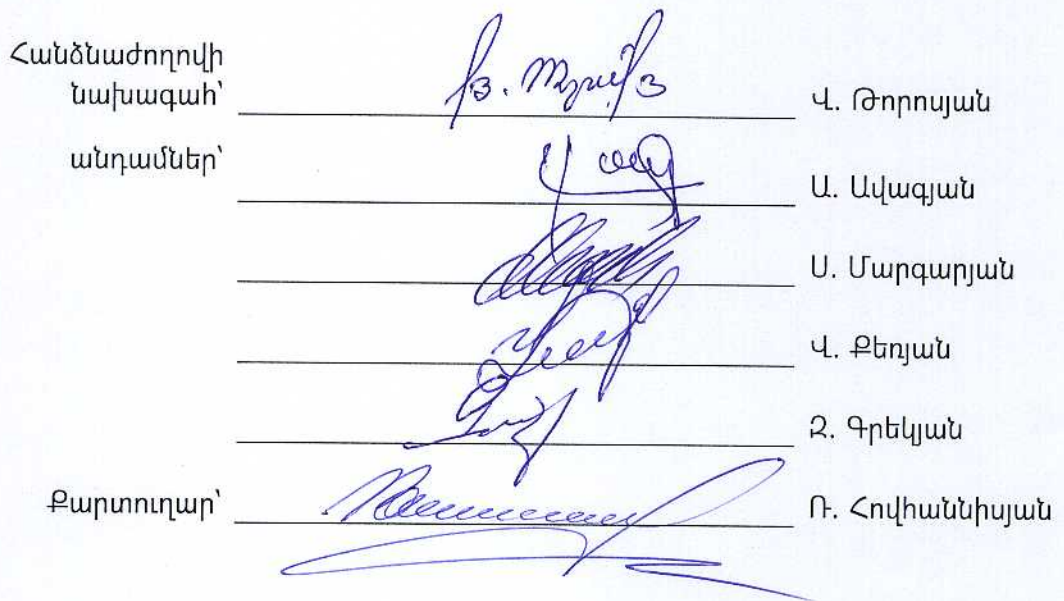 Հանձնաժողովի
նախագահ՝ Վ. Թորոսյան
անդամներ՝
Ա. Ավագյան
Ս. Մարգարյան
Վ. Քեռյան
Զ. Գրեկյան
Քարտուղար՝ Ռ. Հովհաննիսյան